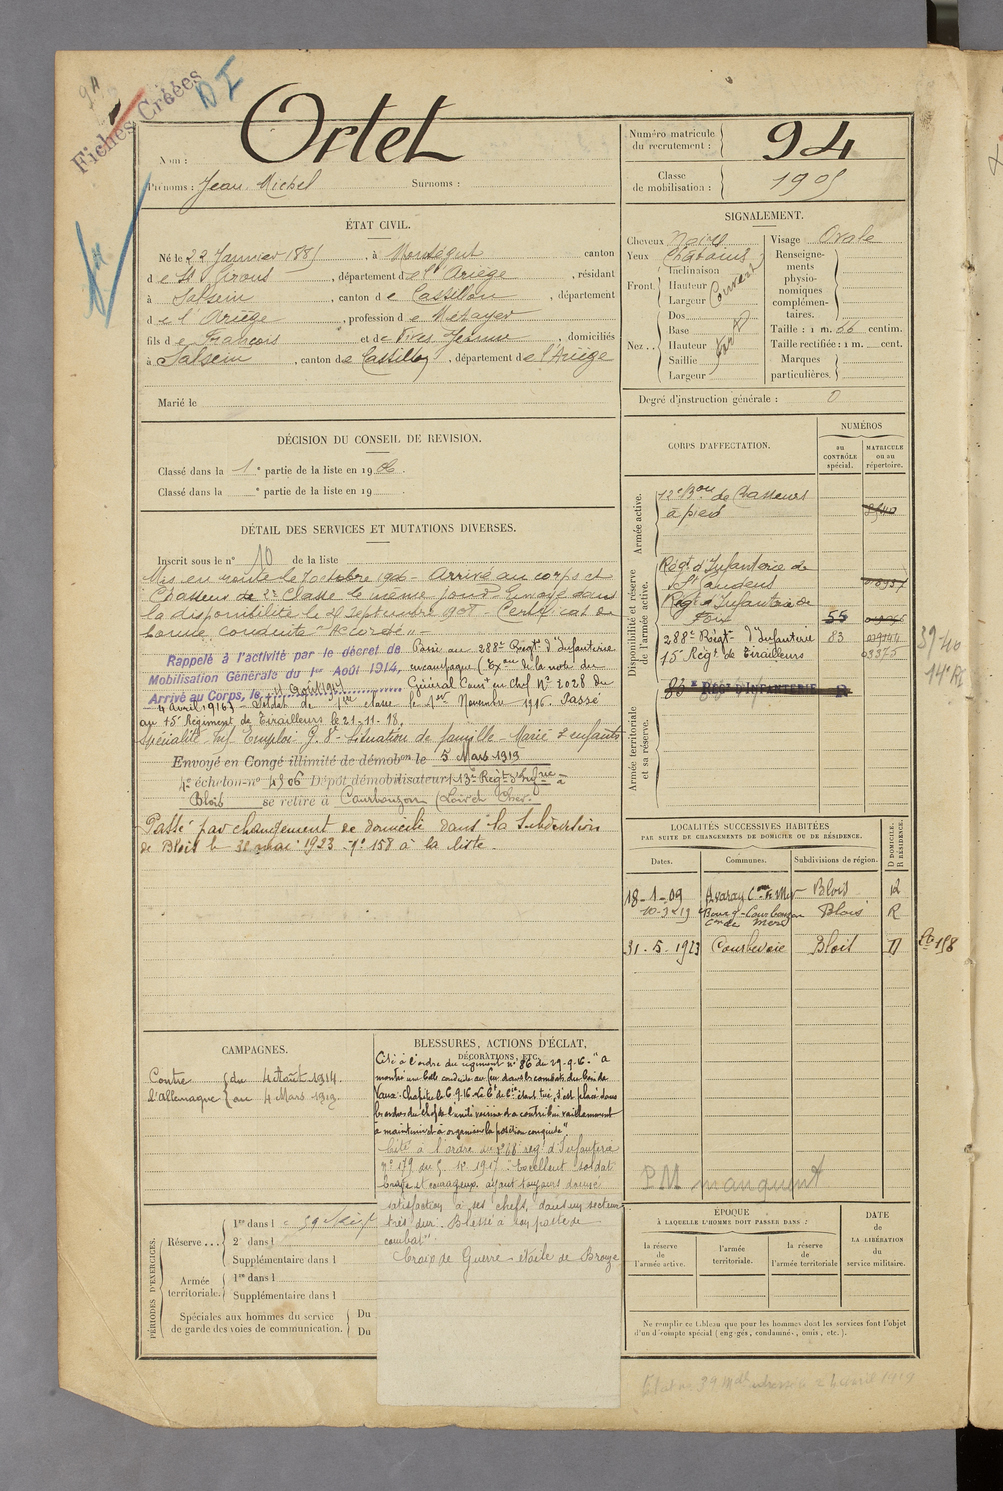 94
Fiches Créées
DI
Nom : Ortet
Prénoms : Jean Michel Surnoms :
Numéro matricule du recrutement : 94
Classe de mobilisation : 1905
ÉTAT CIVIL.
Né le 22 Janvier 1885, à canton
de St Girons, département de l'Ariège, résidant
à Salsein, canton de Castillon, département
de l'Ariège, profession de Métayer
fils de François et de Vives Jeanne, domiciliés
à Salsein, canton de Castillon, département de l'Ariège
Marié le
SIGNALEMENT.
Cheveux Noirs
Yeux Châtains
Front. Inclinaison Hauteur Largeur Couvert
Nez.. Dos Base Hauteur Saillie Largeur Fort
Visage Ovale
Renseignements physionomiques complémentaires.
Taille : 1 m. 66 centim.
Taille rectifiée : 1 m. cent.
Marques particulières.
Degré d'instruction générale : 0
DÉCISION DU CONSEIL DE REVISION.
Classé dans la 1e partie de la liste en 1906.
Classé dans la e partie de la liste en 19
DÉTAIL DES SERVICES ET MUTATIONS DIVERSES.
Inscrit sous le n° 10 de la liste
Mis en route le 7 octobre 1906 - Arrivé au corps et
Chasseur de 2e Classe le même jour. Envoyé dans
la disponibilité le 28 septembre 1908 - Certificat de
bonne conduite "Accordé" -
Rappelé à l'activité par le décret de
Mobilisation Générale du 1er Août 1914,
Arrivé au Corps, le 4 Août 1914
Passé au 288e Régt d'Infanterie
en campagne (Exon de la note du
Général Comt en Chef N° 2028 du
4 avril 1916) - Soldat de 1ère classe le 1er Novembre 1916. Passé
au 15e Régiment de Tirailleurs le 21-11-18.
Spécialité Inf Emploi G. V - Situation de famille - Marié 2 enfants
Envoyé en Congé illimité de démobon le 5 Mars 1919
4e échelon n° 4506 Dépôt démobilisateur 113e Régt d'Infrie à
Blois se retire à Courbouzon (Loir et Cher.
Passé par changement de domicile dans la Subdivision
de Blois le 31 mai 1923 N° 158 à la liste.
CORPS D'AFFECTATION.
NUMÉROS
au CONTRÔLE spécial.
MATRICULE ou au répertoire.
Armée active.
12e Bon de Chasseurs
à pied
Disponibilité et réserve de l'armée active.
Régt d'Infanterie de
St Gaudens
Régt d'Infanterie de
Foix 55
288e Régt d'Infanterie 83
15e Régt de Tirailleurs 03375
83e RÉGt D'INFANTERIE R
Armée territoriale et sa réserve.
39-40
LOCALITÉS SUCCESSIVES HABITÉES
PAR SUITE DE CHANGEMENTS DE DOMICILE OU DE RÉSIDENCE.
Dates. Communes. Subdivisions de région. D DOMICILE. R RÉSIDENCE.
18-1-09 Avaray Con de Mer Blois R
10-3-19 Bourg-Courbouzon con de Mer Blois R
31-5-1923 Courbevoie Blois D
158
PM manquent
CAMPAGNES.
Contre du 4 Août 1914.
l'Allemagne au 4 Mars 1919.
BLESSURES, ACTIONS D'ÉCLAT,
DÉCORATIONS, ETC.
Cité à l'ordre du régiment n° 86 du 29-9-16. "A
montré une belle conduite au feu dans les combats du bois de
Vaux-Chapitre le 6.9.16. Le Ct de Cie étant tué, s'est placé sous
les ordres du chef de l'unité voisine et a contribué vaillamment
à maintenir et à organiser la position conquise"
Cité à l'ordre du 288e régt d'Infanterie
n° 179 du 1917. "Excellent soldat
brave et courageux ayant toujours donné
satisfaction à ses chefs, dans un secteur
très dur. Blessé à son poste de
combat".
Croix de Guerre - étoile de Bronze
PÉRIODES D'EXERCICES.
Réserve... 1re dans l
2e dans l
Supplémentaire dans l
Armée territoriale. 1re dans l
Supplémentaire dans l
Spéciales aux hommes du service Du
de garde des voies de communication. Du
ÉPOQUE
À LAQUELLE L'HOMME DOIT PASSER DANS :
la réserve de l'armée active.
l'armée territoriale.
la réserve de l'armée territoriale
DATE de LA LIBÉRATION du service militaire.
Ne remplir ce tableau que pour les hommes dont les services font l'objet
d'un décompte spécial (engagés, condamnés, omis, etc.).